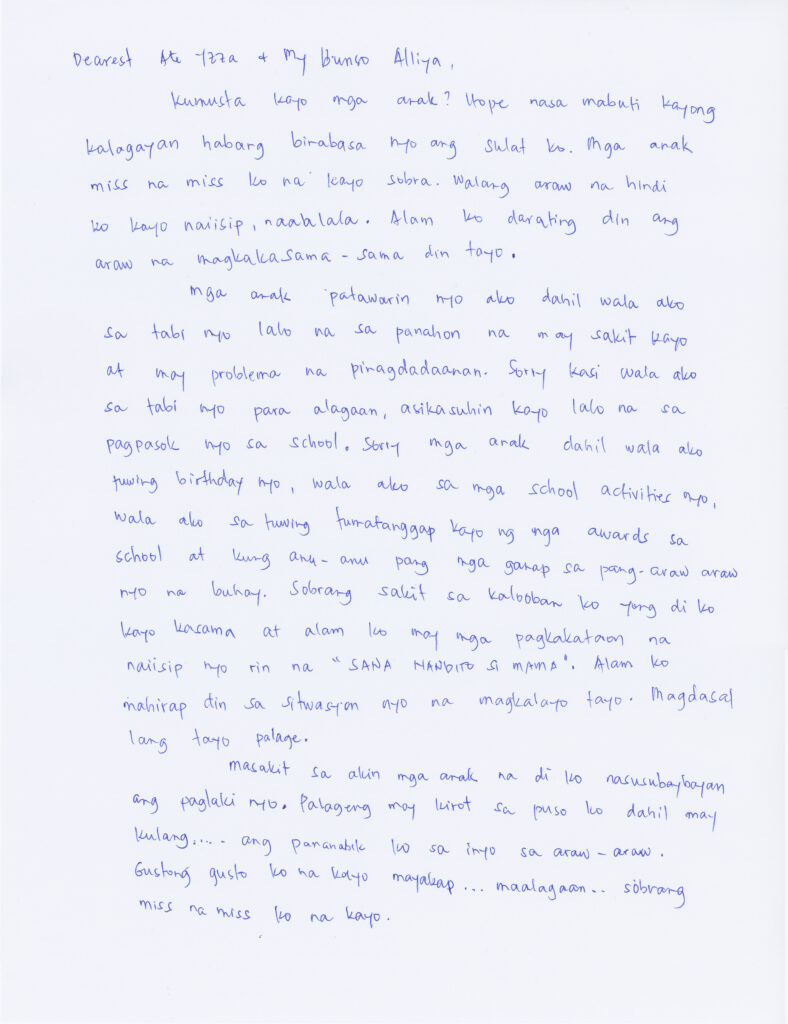 Dearest Ate Yzza & My Bunso Alliya,
Kumusta kayo mga anak? Hope nasa mabuti kayong
kalagayan habang binabasa nyo ang sulat ko. Mga anak
miss na miss ko na kayo sobra. Walang araw na hindi
ko kayo naiisip, naaalala. Alam ko darating din ang
araw na magkakasama-sama din tayo.
Mga anak patawarin nyo ako dahil wala ako
sa tabi nyo lalo na sa panahon na may sakit kayo
at may problema na pinagdadaanan. Sorry kasi wala ako
sa tabi nyo para alagaan, asikasuhin kayo lalo na sa
pagpasok nyo sa school. Sorry mga anak dahil wala ako
tuwing birthday nyo, wala ako sa mga school activities nyo,
wala ako sa tuwing tumatanggap kayo ng mga awards sa
school at kung anu-anu pang mga ganap sa pang-araw araw
nyo na buhay. Sobrang sakit sa kalooban ko yong di ko
kayo kasama at alam ko may mga pagkakataon na
naiisip nyo rin na "SANA NANDITO SI MAMA". Alam ko
mahirap din sa sitwasyon nyo na magkalayo tayo. Magdasal
lang tayo palage.
Masakit sa akin mga anak na di ko nasusubaybayan
ang paglaki nyo. Palageng may kirot sa puso ko dahil may
kulang..... ang pananabik ko sa inyo sa araw-araw.
Gustong gusto ko na kayo mayakap... maalagaan.. sobrang
miss na miss ko na kayo.